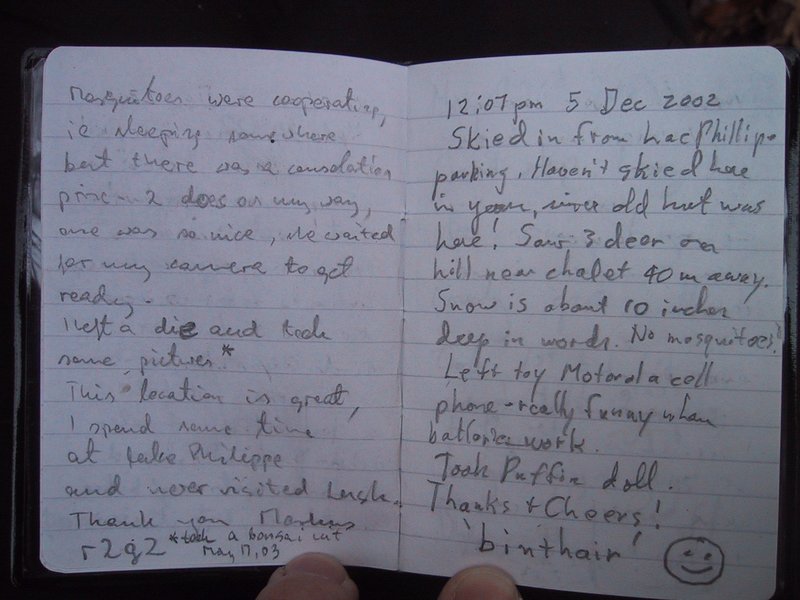 Mosquitoes were cooperating,
ie sleeping somewhere
but there was a consolation
prize - 2 does on my way,
one was so nice, she waited
for my camera to get
ready.
I left a die and took
some pictures*
This location is great,
I spend some time
at Lake Philippe
and never visited Lusk.
Thank you Markus
r2g2 *took a bongai cut
May 17, 03
12:07pm 5 Dec 2002
Skied in from Lac Phillipe
parking. Haven't skied here
in years, since old hut was
here! Saw 3 deer on
hill near chalet 40 m away.
Snow is about 10 inches
deep in woods. No mosquitoes!
Left toy Motorola cell
phone - really funny when
batteries work.
Took Puffin doll.
Thanks + Cheers!
'binthair'